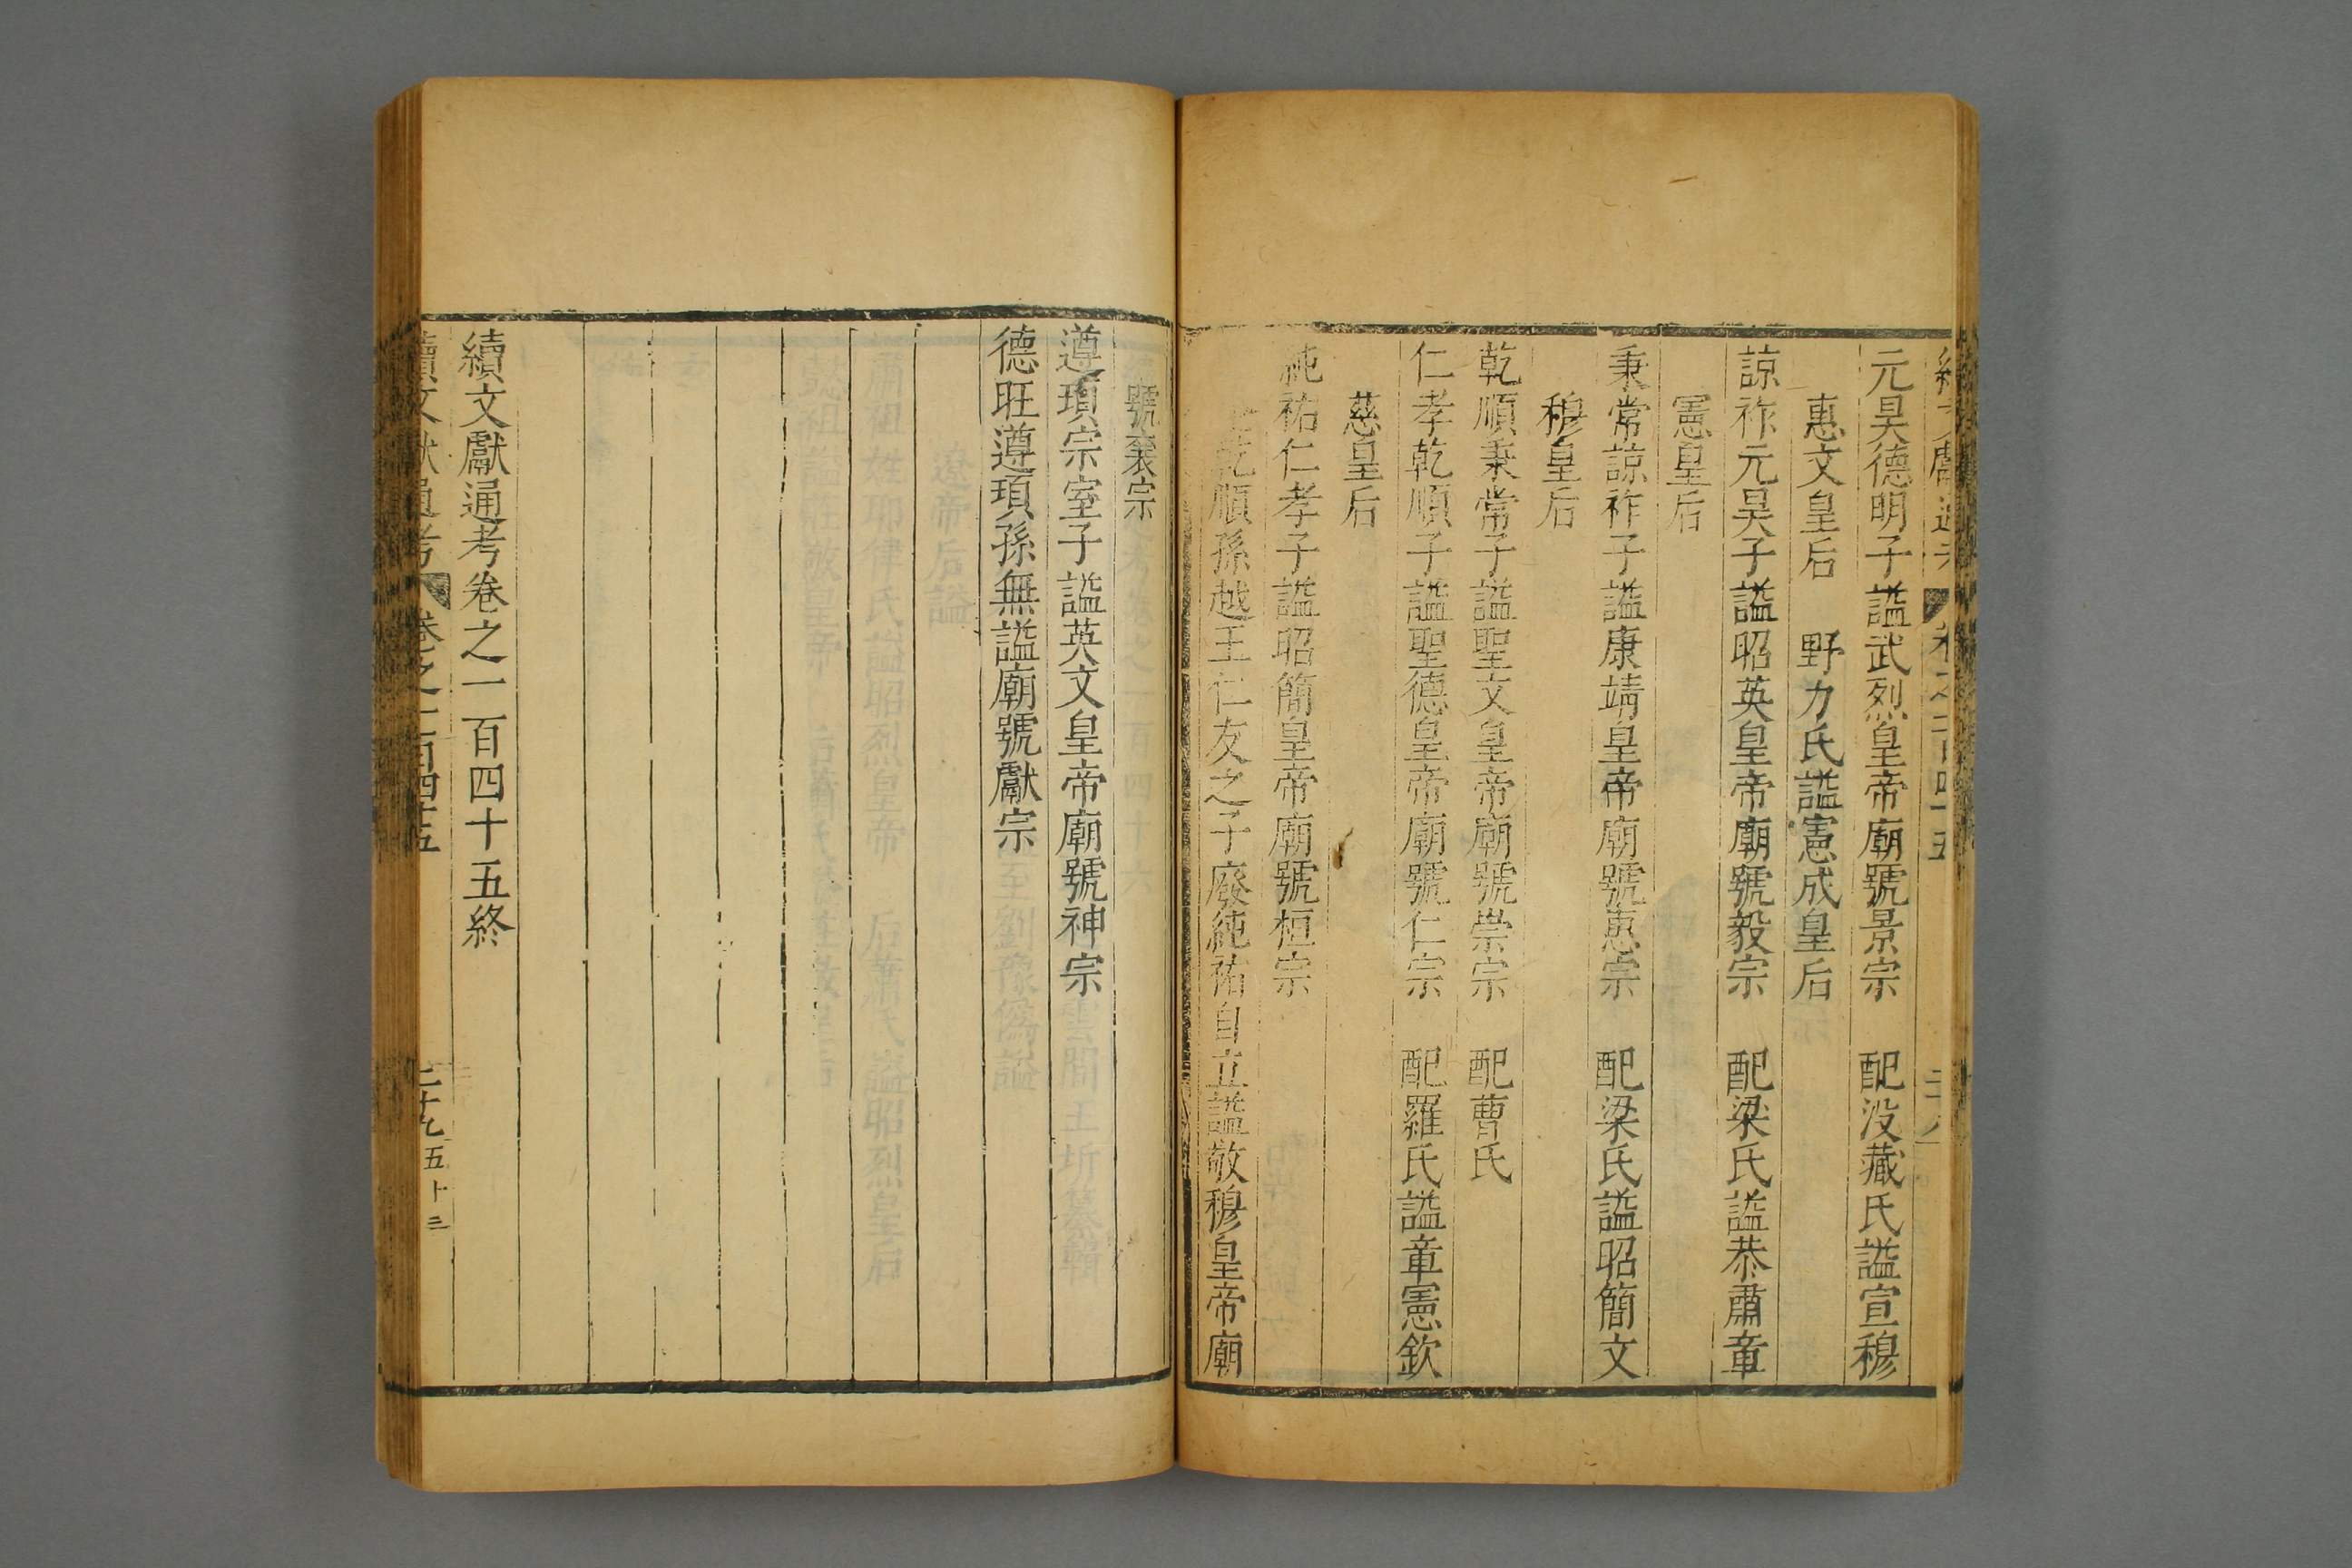 元昊德明子謚武烈皇帝廟號景宗　配没藏氏謚宣穆
惠文皇后　野力氏謚憲成皇后
諒祚元昊子謚昭英皇帝廟號毅宗　配梁氏謚恭肅章
憲皇后
秉常諒祚子謚康靖皇帝廟號惠宗　配梁氏謚昭簡文
穆皇后
乾順秉常子謚聖文皇帝廟號崇宗　配曹氏
仁孝乾順子謚聖德皇帝廟號仁宗　配羅氏謚章憲欽
慈皇后
純祐仁孝子謚昭簡皇帝廟號桓宗
乾順孫越王仁友之子廢純祐自立謚敬穆皇帝廟
號襄宗
遵頊宗室子謚英文皇帝廟號神宗
德旺遵頊孫無謚廟號獻宗
續文獻通考卷之一百四十五終
續文獻通考　卷之一百四十五　二十九　五十三